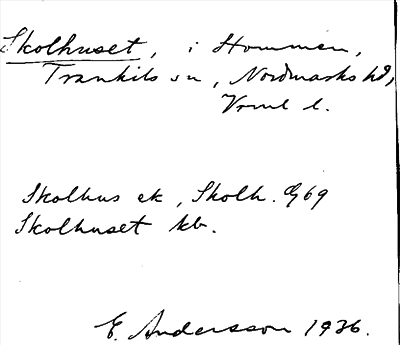 Skolhuset, i Hommen,
Trankils sn, Nordmarks hd,
Vrml l.
Skolhus ek, Skolh. G69
Skolhuset kb.
E. Andersson 1936.